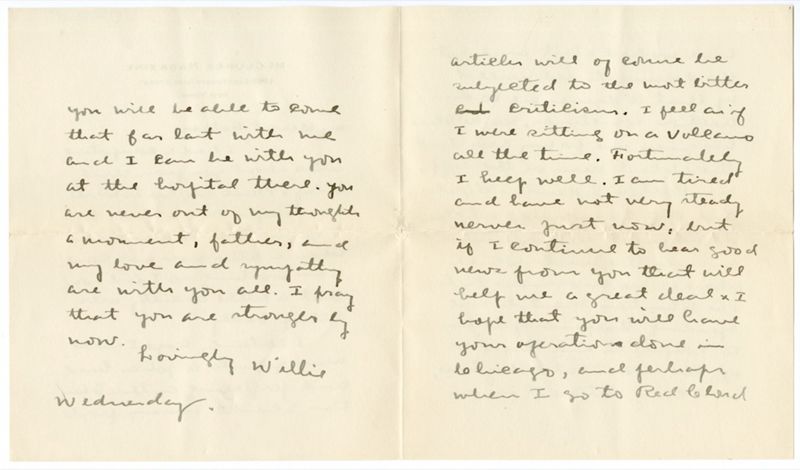 you will be able to come
that far east with me
and I can be with you
at the hospital there. You
are never out of my thoughts
a moment, father, and
my love and sympathy
are with you all. I pray
that you are stronger by
now.
Lovingly Willie
Wednesday.
articles will of course be
subjected to the most bitter
criticism. I feel as if
I were sitting on a volcano
all the time. Fortunately
I keep well. I am tired
and have not very steady
nerves just now, but
if I continue to hear good
news from you that will
help me a great deal. I
hope that you will have
your operation done in
Chicago, and perhaps
when I go to Red Cloud